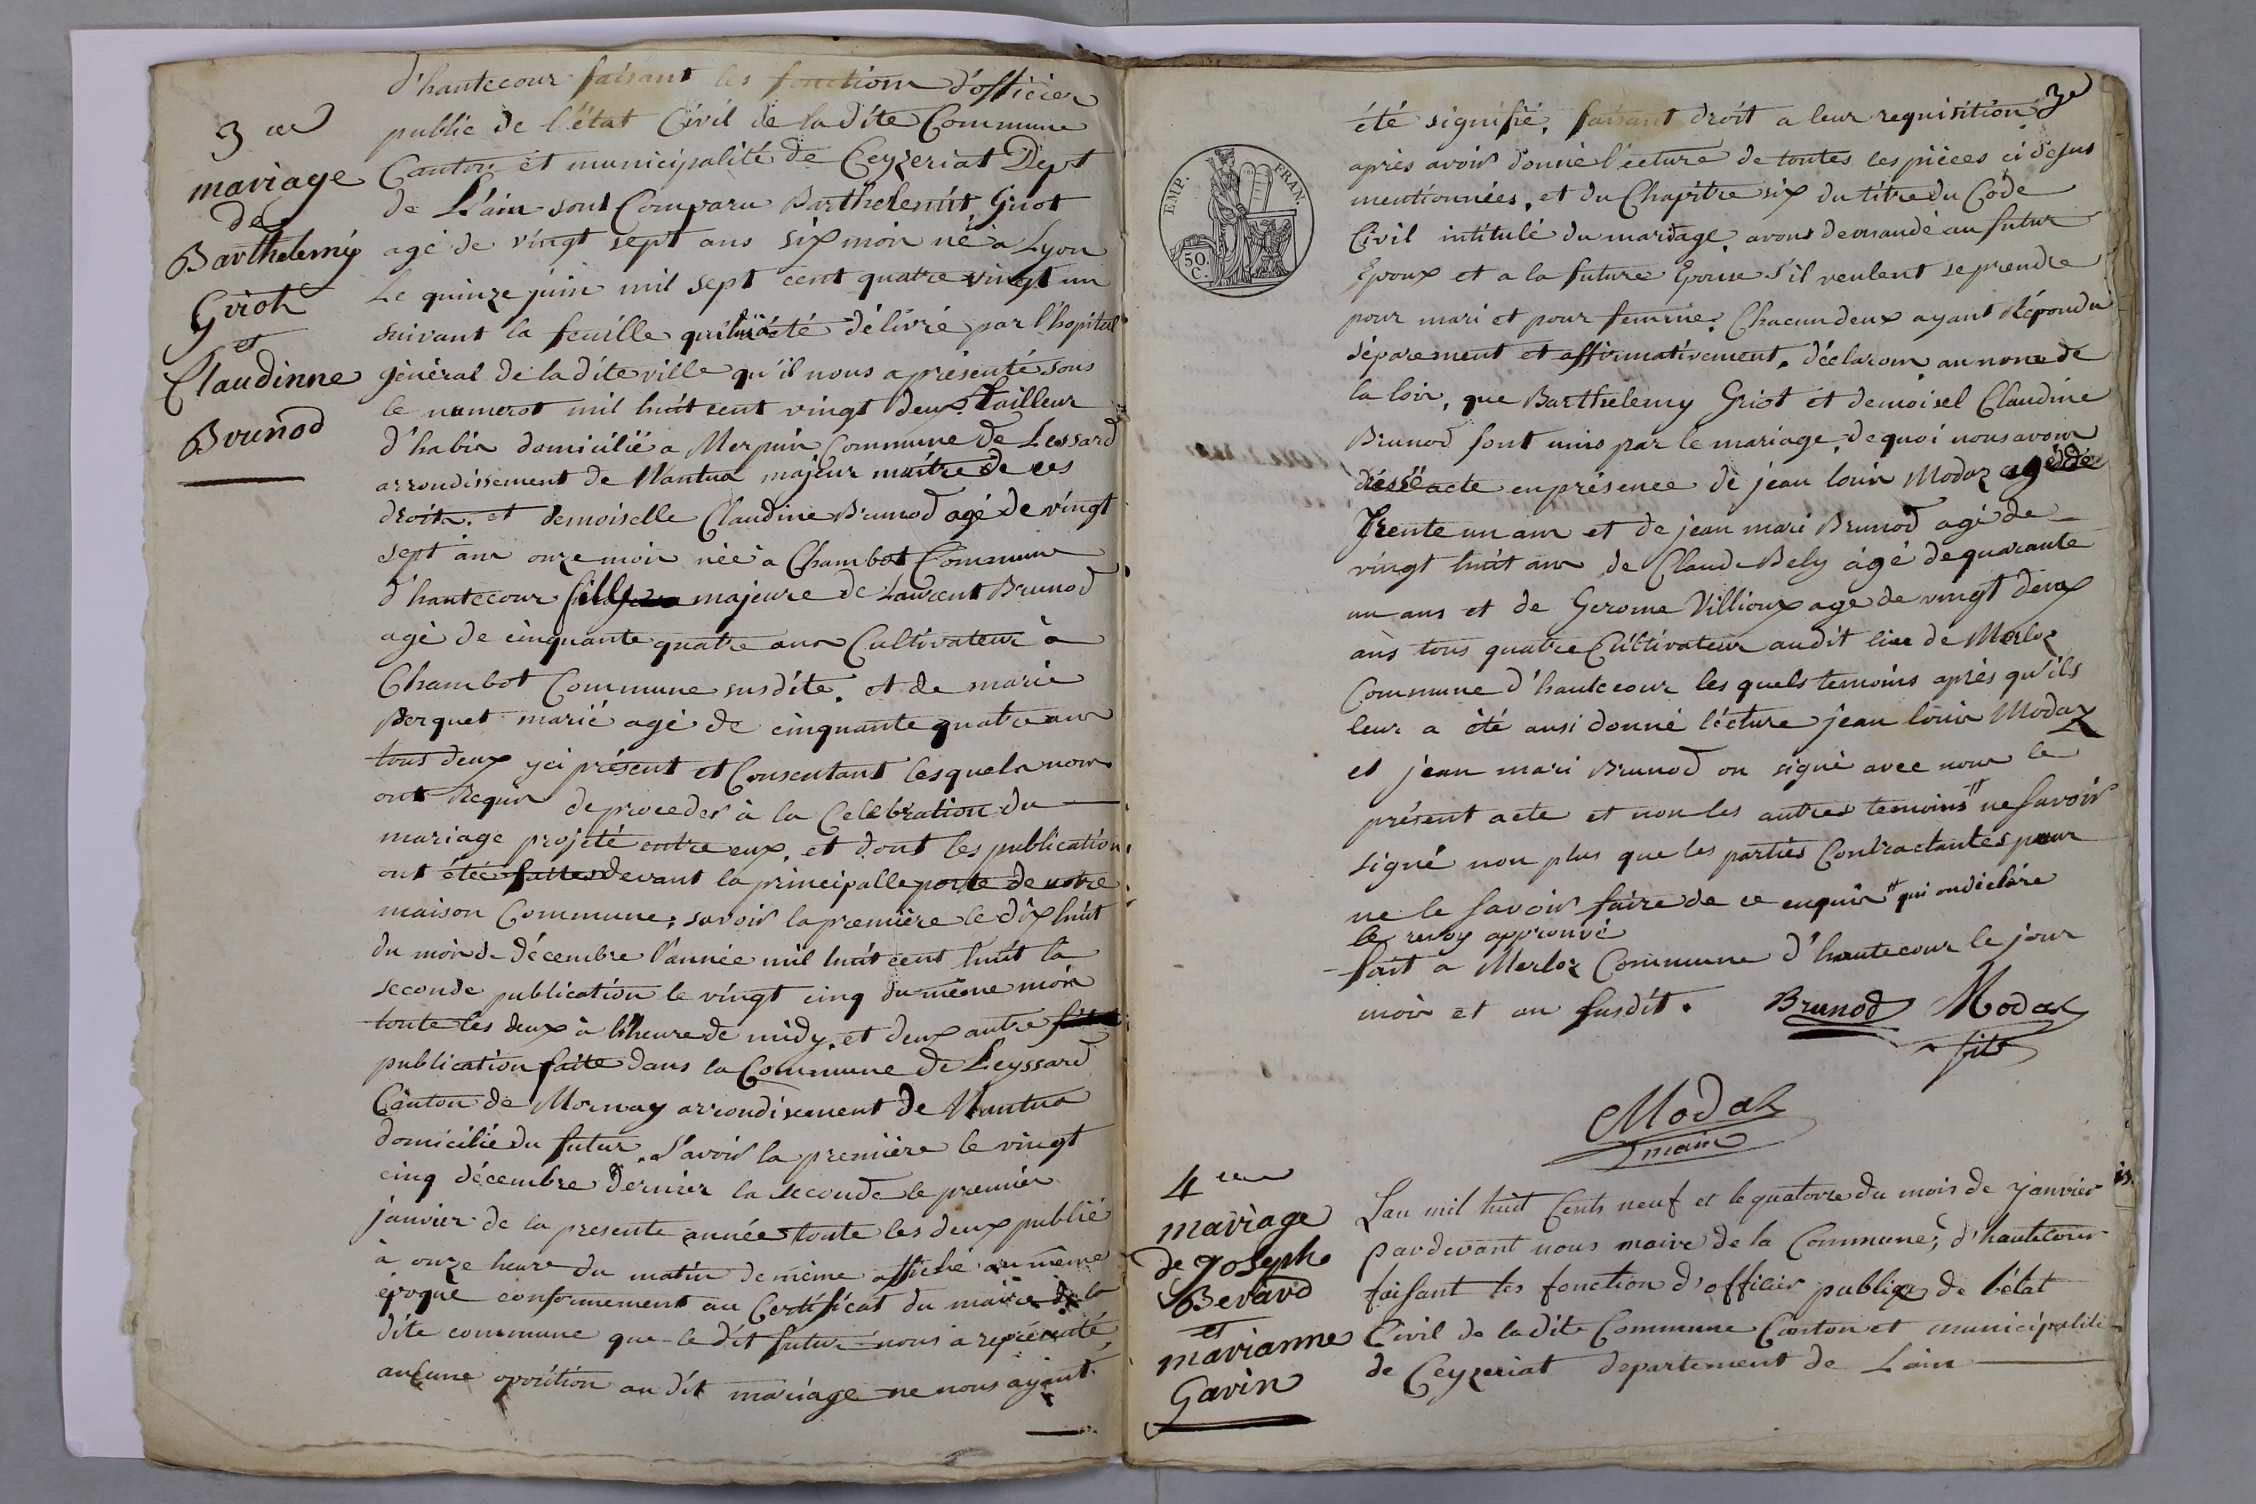 3e
mariage
de
Barthelemy
Griot
et
Claudinne
Brunod
d'hautecour faisant les fonction d'officier
public de l'état Civil de la dite Commune
Canton et municipalité de Ceyzeriat Dept
de L'ain sont Comparu Barthelemit Griot
agé de vingt sept ans six mois né a Lyon
Le quinze juin mil sept cent quatre vingt un
suivant la feuille qui lui a été délivré par l'hopital
général de la dite ville qu'il nous a présenté sous
le numerot mil huit cent vingt deux tailleur
d'habis domicilié a Merpuis Commune de Lessard
arrondissement de Nantua majeur maitre de ces
droits. et demoiselle Claudine Brunod agé de vingt
sept ans onze mois née a Chambot Commune
d'hautecour fille majeure de Laurent Brunod
agé de cinquante quatre ans Cultivateur à
Chambot Commune susdite. et de marie
Berquet marié agé de cinquante quatre ans
tous deux yci présent et Consentant lesquels nous
ont Requis de proceder à la Celebration du
mariage projeté entre eux. et dont les publication
ont étée faites devant la principalle porte de notre
maison Commune; savoir la première le dix huit
du mois de décembre l'année mil huit cent huit la
seconde publication le vingt cinq du même mois
toute les deux à l'heure de midy. et deux autre
publication faite dans la Commune de Leyssard
Canton de Mornay arrondisement de Nantua
domicilié du futur. Savoir la première le vingt
cinq décembre dernier la seconde le premier
janvier de la presente année toute les deux publié
à onze heure du matin de même affiché au même
époque conformement au Certificat du maire de la
dite commune que le dit futur nous a représenté,
aucune oposition au dit mariage ne nous ayant
3e
EMP. FRAN.
50.
C.
été signifié. faisant droit a leur requisition
après avoir donné lecture de toutes les pièces ci desus
mentionnées. et du Chapitre six du titre du Code
Civil intitulé du mariage. avons demandé au futur
Epoux et a la future Epouse s'il veulent se prendre
pour mari et pour femme. Chacun deux ayant Répondu
séparement et affirmativement. déclarons au nom de
la loix. que Barthelemy Griot et demoisel Claudine
Brunod sont unis par le mariage. de quoi nous avons
dressé acte en présence de jean louis Modaz agé de
Trente un ans et de jean mari Brunod agé de
vingt huit ans de Claude Bely agé de quarante
un ans et de Gerome Villioux age de vingt deux
ans tous quatre Cultivateur au dit lieu de Merloz
Commune d'hautecour les quels temoins après qu'ils
leur a été ausi donné lécture jean louis Modaz
et jean mari Brunod on signé avec nous le
présent acte et non les autres temoins " ne savoir
signé non plus que les partiés Contractantes pour
ne le savoir faire de ce enquis " qui on déclare
le renvoy approuvé
fait a Merloz Commune d'hautecour le jour
mois et an susdit. Brunod Modas
fils
Modas
maire
4e
mariage
de Joseph
Berard
et
marianne
Gavin
Lan mil huit Cents neuf et le quatorze du mois de janvier
pardevant nous maire de la Commune, d'hautecour
faisant les fonction d'officier publique de l'état
Civil de la dite Commune Canton et municipalité
de Ceyzeriat departement de Lain